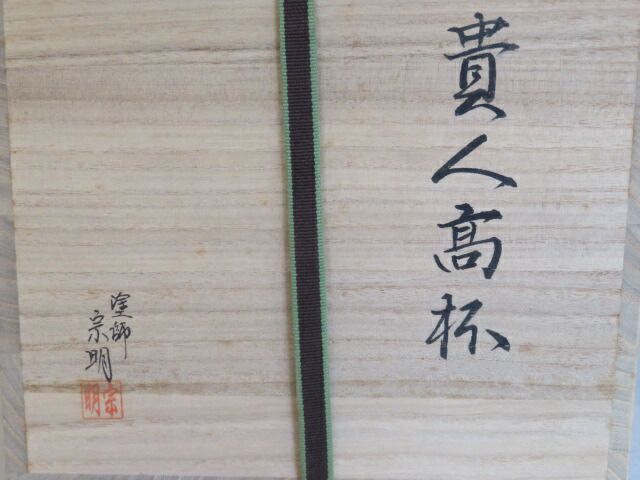 貴人髙杯
塗師
宗明
宗明